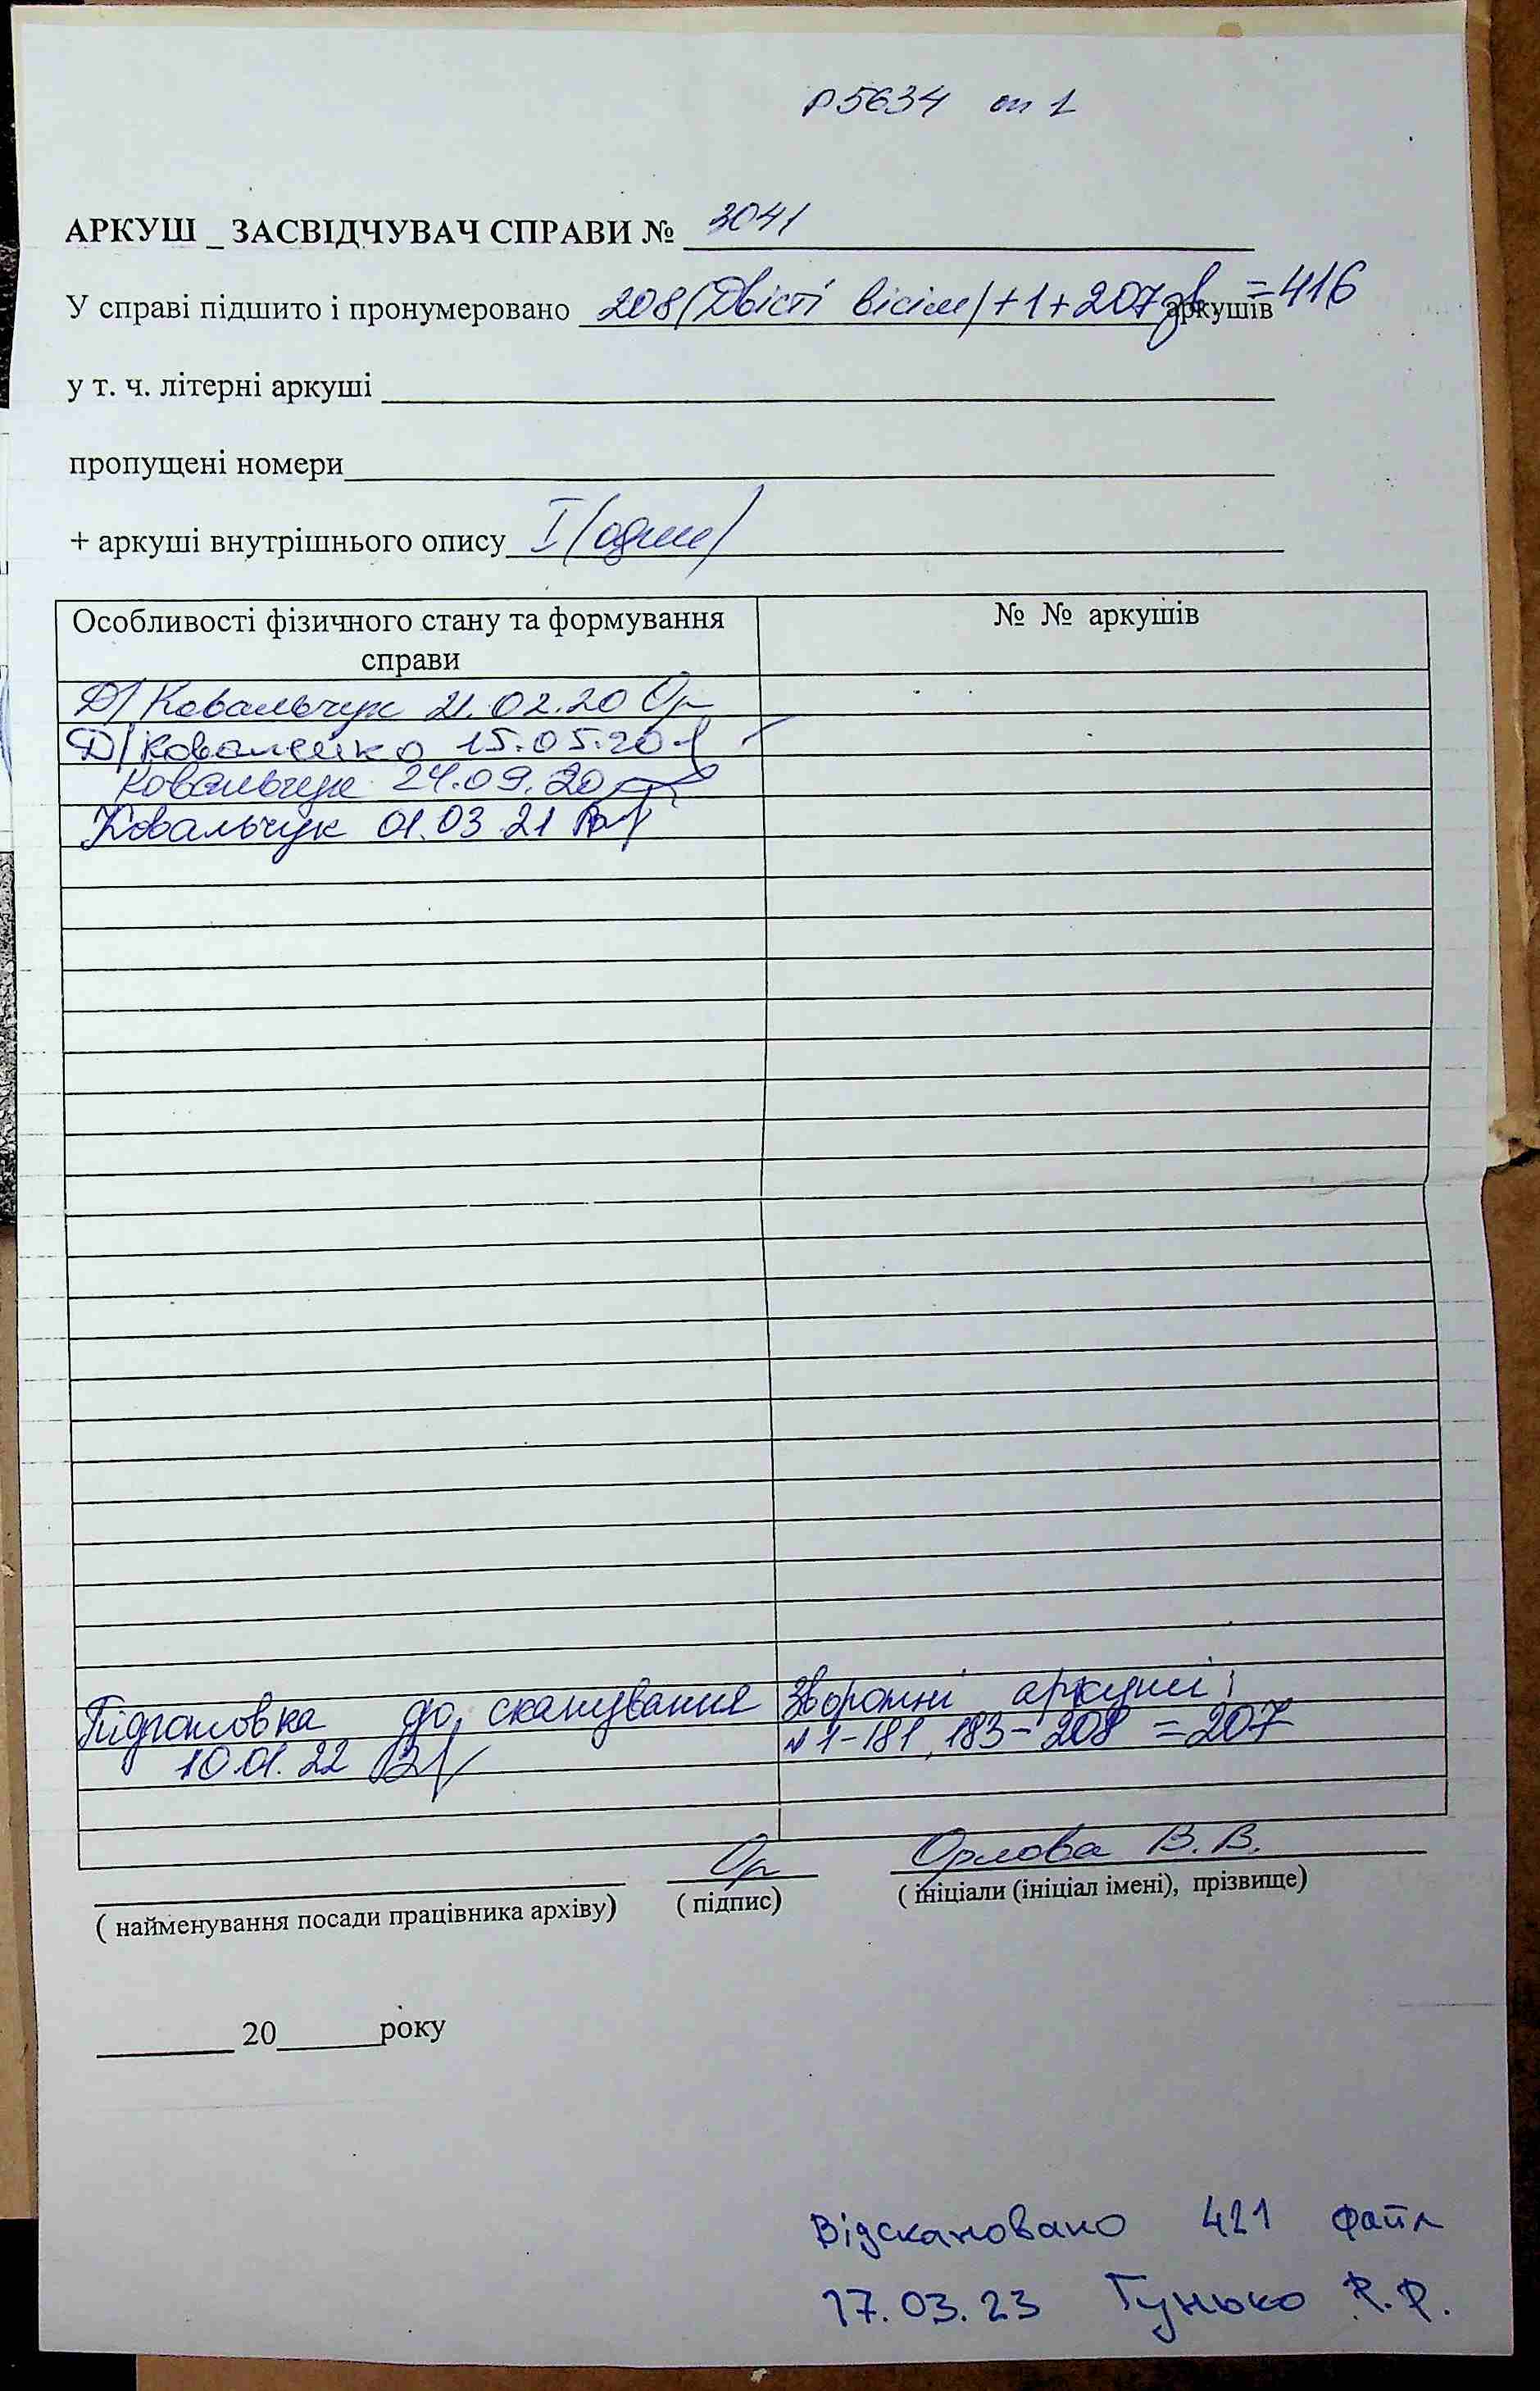 Р5634 оп 1
АРКУШ _ ЗАСВІДЧУВАЧ СПРАВИ № 3041
У справі підшито і пронумеровано 208 (Двісті вісім) +1+207 зв. аркушів =416
у т. ч. літерні аркуші
пропущені номери
+ аркуші внутрішнього опису I (один)
Особливості фізичного стану та формування справи
№ № аркушів
Д/ Ковальчук 21.02.20 Ор
Д/ Коваленко 15.05.20
Ковальчук 24.09.20
Ковальчук 01.03 21
Підготовка до сканування Зворотні аркуші:
10.01.22 №1-181, 183-208 =207
Ор Орлова В.В.
( найменування посади працівника архіву) ( підпис) ( ініціали (ініціал імені), прізвище)
20 року
Відскановано 421 файл
17.03.23 Гунько Р.Р.